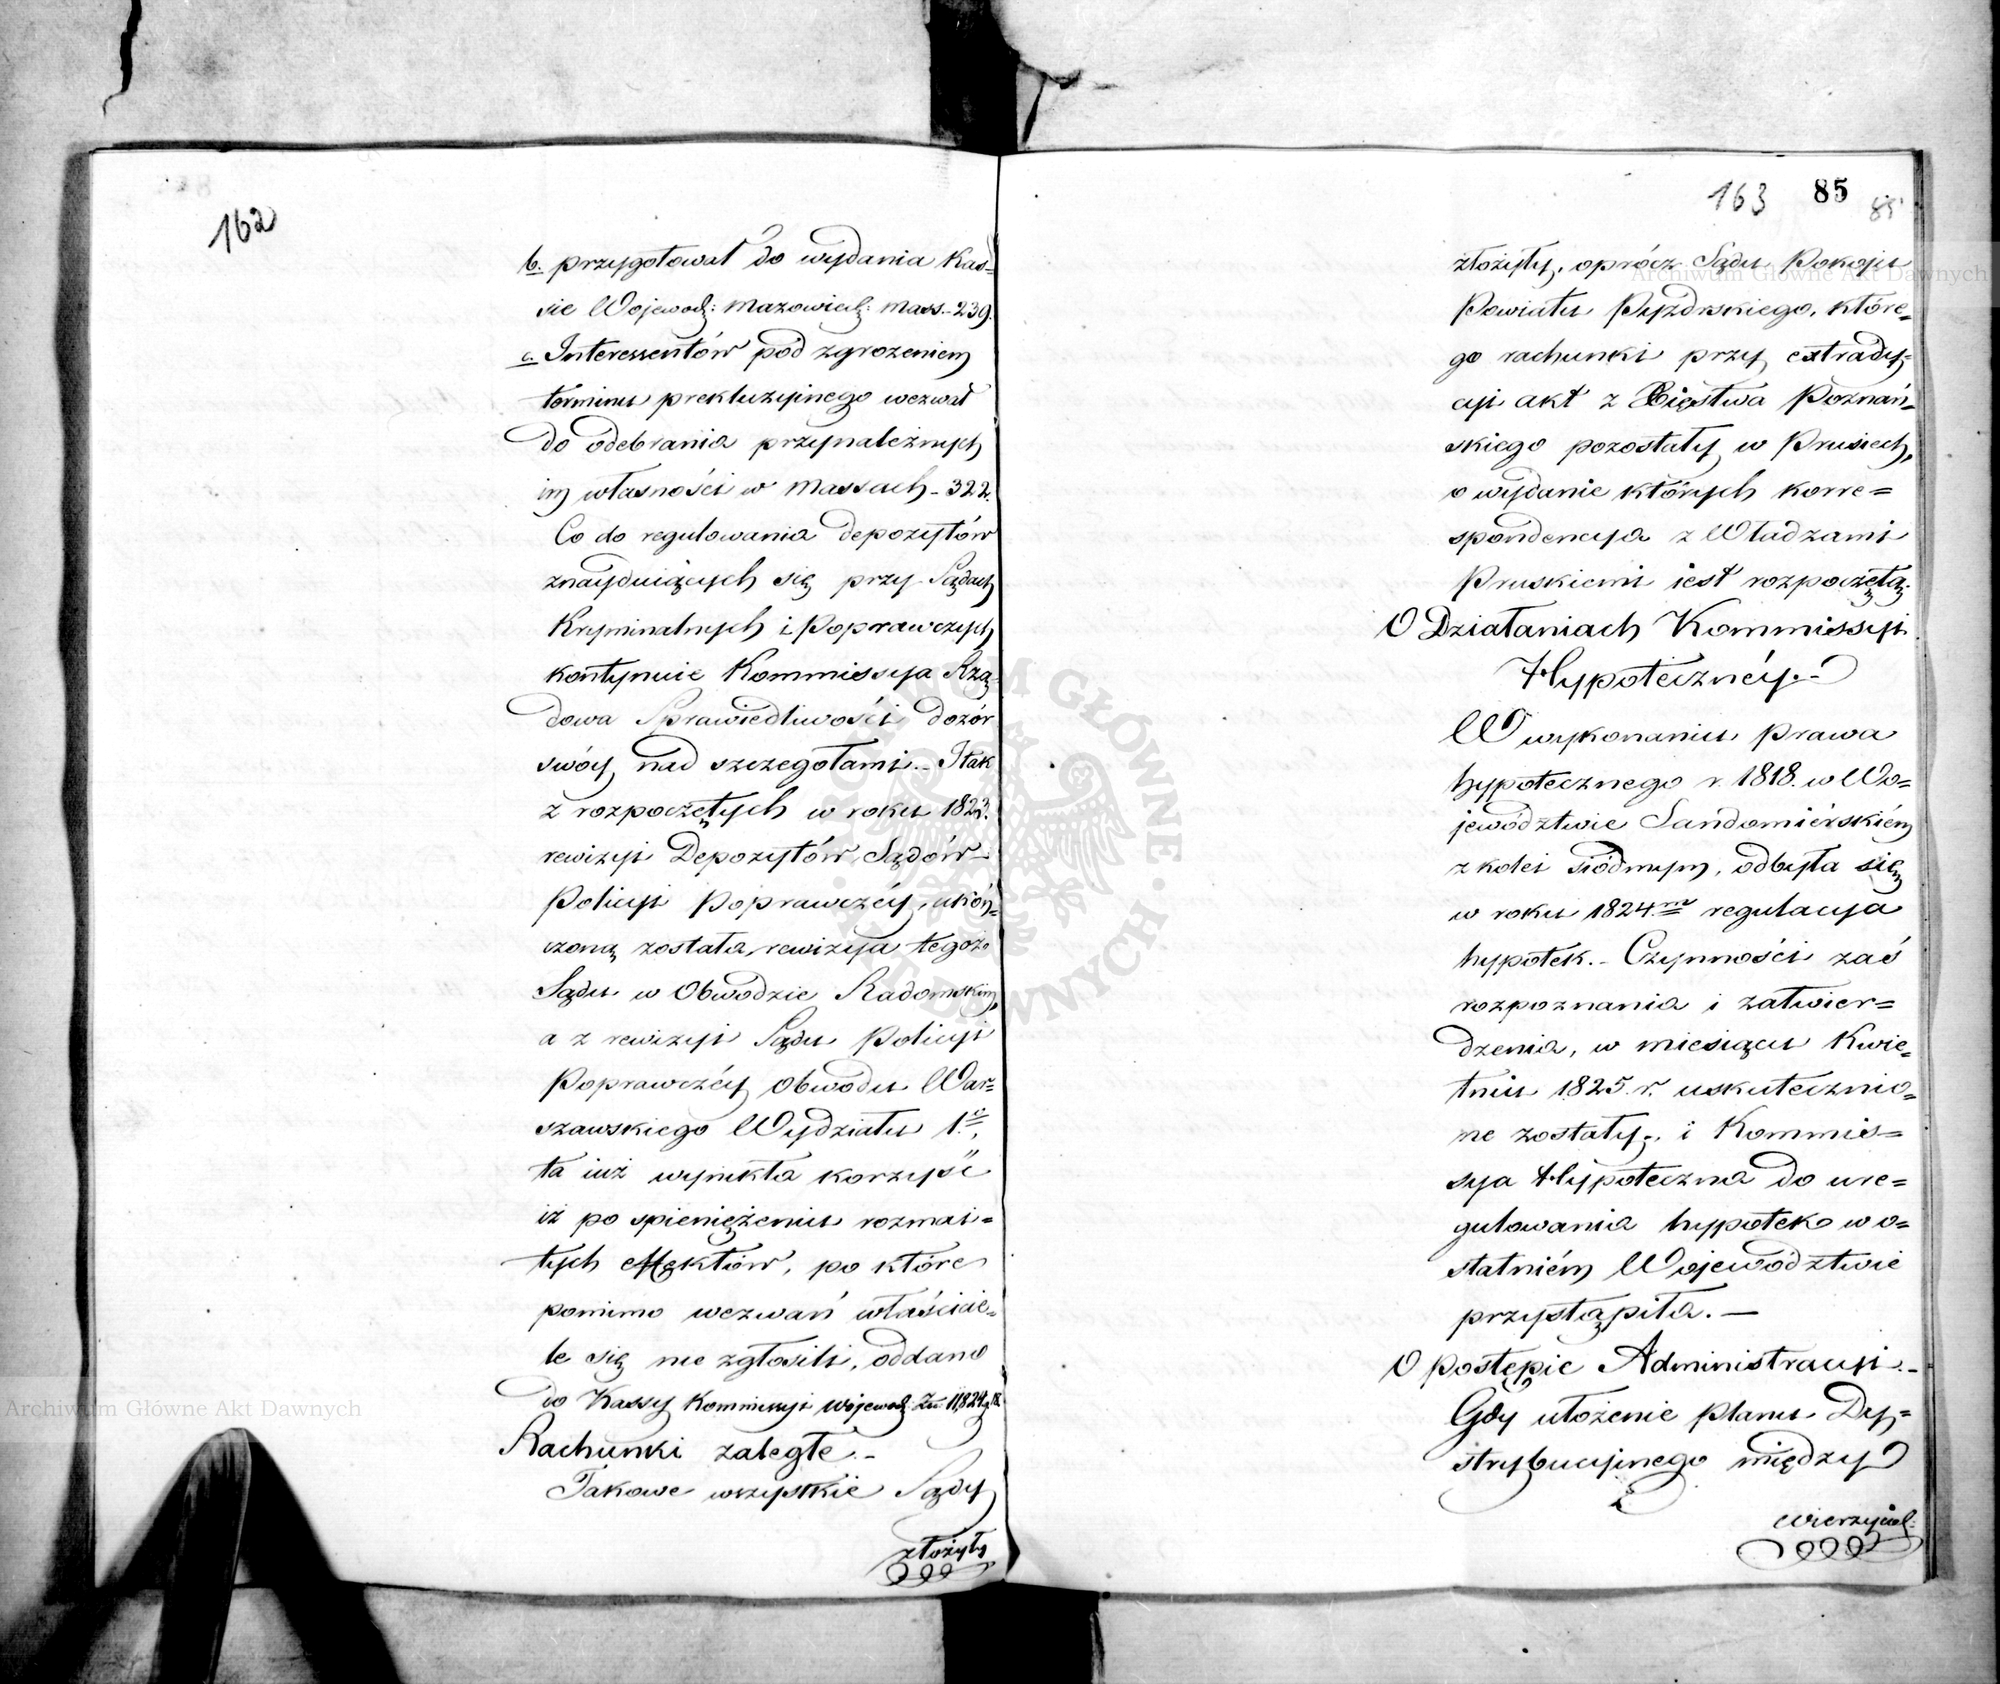 162
b. przygotował do wydania Kas-
sie Wojewodz: Mazowieck: Mass.- 239.
c. Interessentów pod zgrożeniem
terminu prekluzyinego wezwał
do odebrania przynależnych
im własności w Massach - 322.
Co do regulowania depozytów
znayduiących się przy Sądach
Kryminalnych i Poprawczych
kontynuie Kommissya Rzą-
dowa Sprawiedliwości dozór
swóy nad szczegołami.- I tak
z rozpoczętych w roku 1823.
rewizyi Depozytów Sądów
Policyi Poprawczéy, ukoń-
czoną została rewizya tegoż
Sądu w Obwodzie Radomskim,
a z rewizyi Sądu Policyi
Poprawczéy Obwodu War-
szawskiego Wydziału 1.o,
ta iuż wynikła korzyść
iż po spieniężeniu rozmai-
tych effektów, po które
pomimo wezwań właścicie-
le się nie zgłosili, oddano
do Kassy Kommissyi Wojewodz: Zł. 11,824
Rachunki zaległe.-
Takowe wszystkie Sądy
złożyły
163 85 85
złożyły, oprócz Sądu Pokoju
Powiatu Pyzdrskiego, które-
go rachunki przy extrady-
cyi akt z Xięstwa Poznań-
skiego pozostały w Prusiech,
o wydanie których korre=
spondencya z Władzami
Pruskiemi iest rozpoczętą.
O Działaniach Kommissyi
Hypoteczney.-
W wykonaniu Prawa
hypotecznego r. 1818. w Wo=
jewództwie Sandomiérskiém
z kolei siódmym, odbyła się
w roku 1824.m regulacya
hypotek.- Czynności zaś
rozpoznania i zatwier=
dzenia, w miesiącu Kwie-
tniu 1825. r. uskutecznio=
ne zostały, i Kommis=
sya Hypoteczna do ure=
gulowania hypotek w o=
statniém Województwie
przystąpiła.-
O postępie Administracyi.-
Gdy ułożenie planu Dy=
strybucyinego między
wierzyciel:
Archiwum Główne Akt Dawnych
Archiwum Główne Akt Dawnych
ARCHIWUM GŁÓWNE AKT DAWNYCH